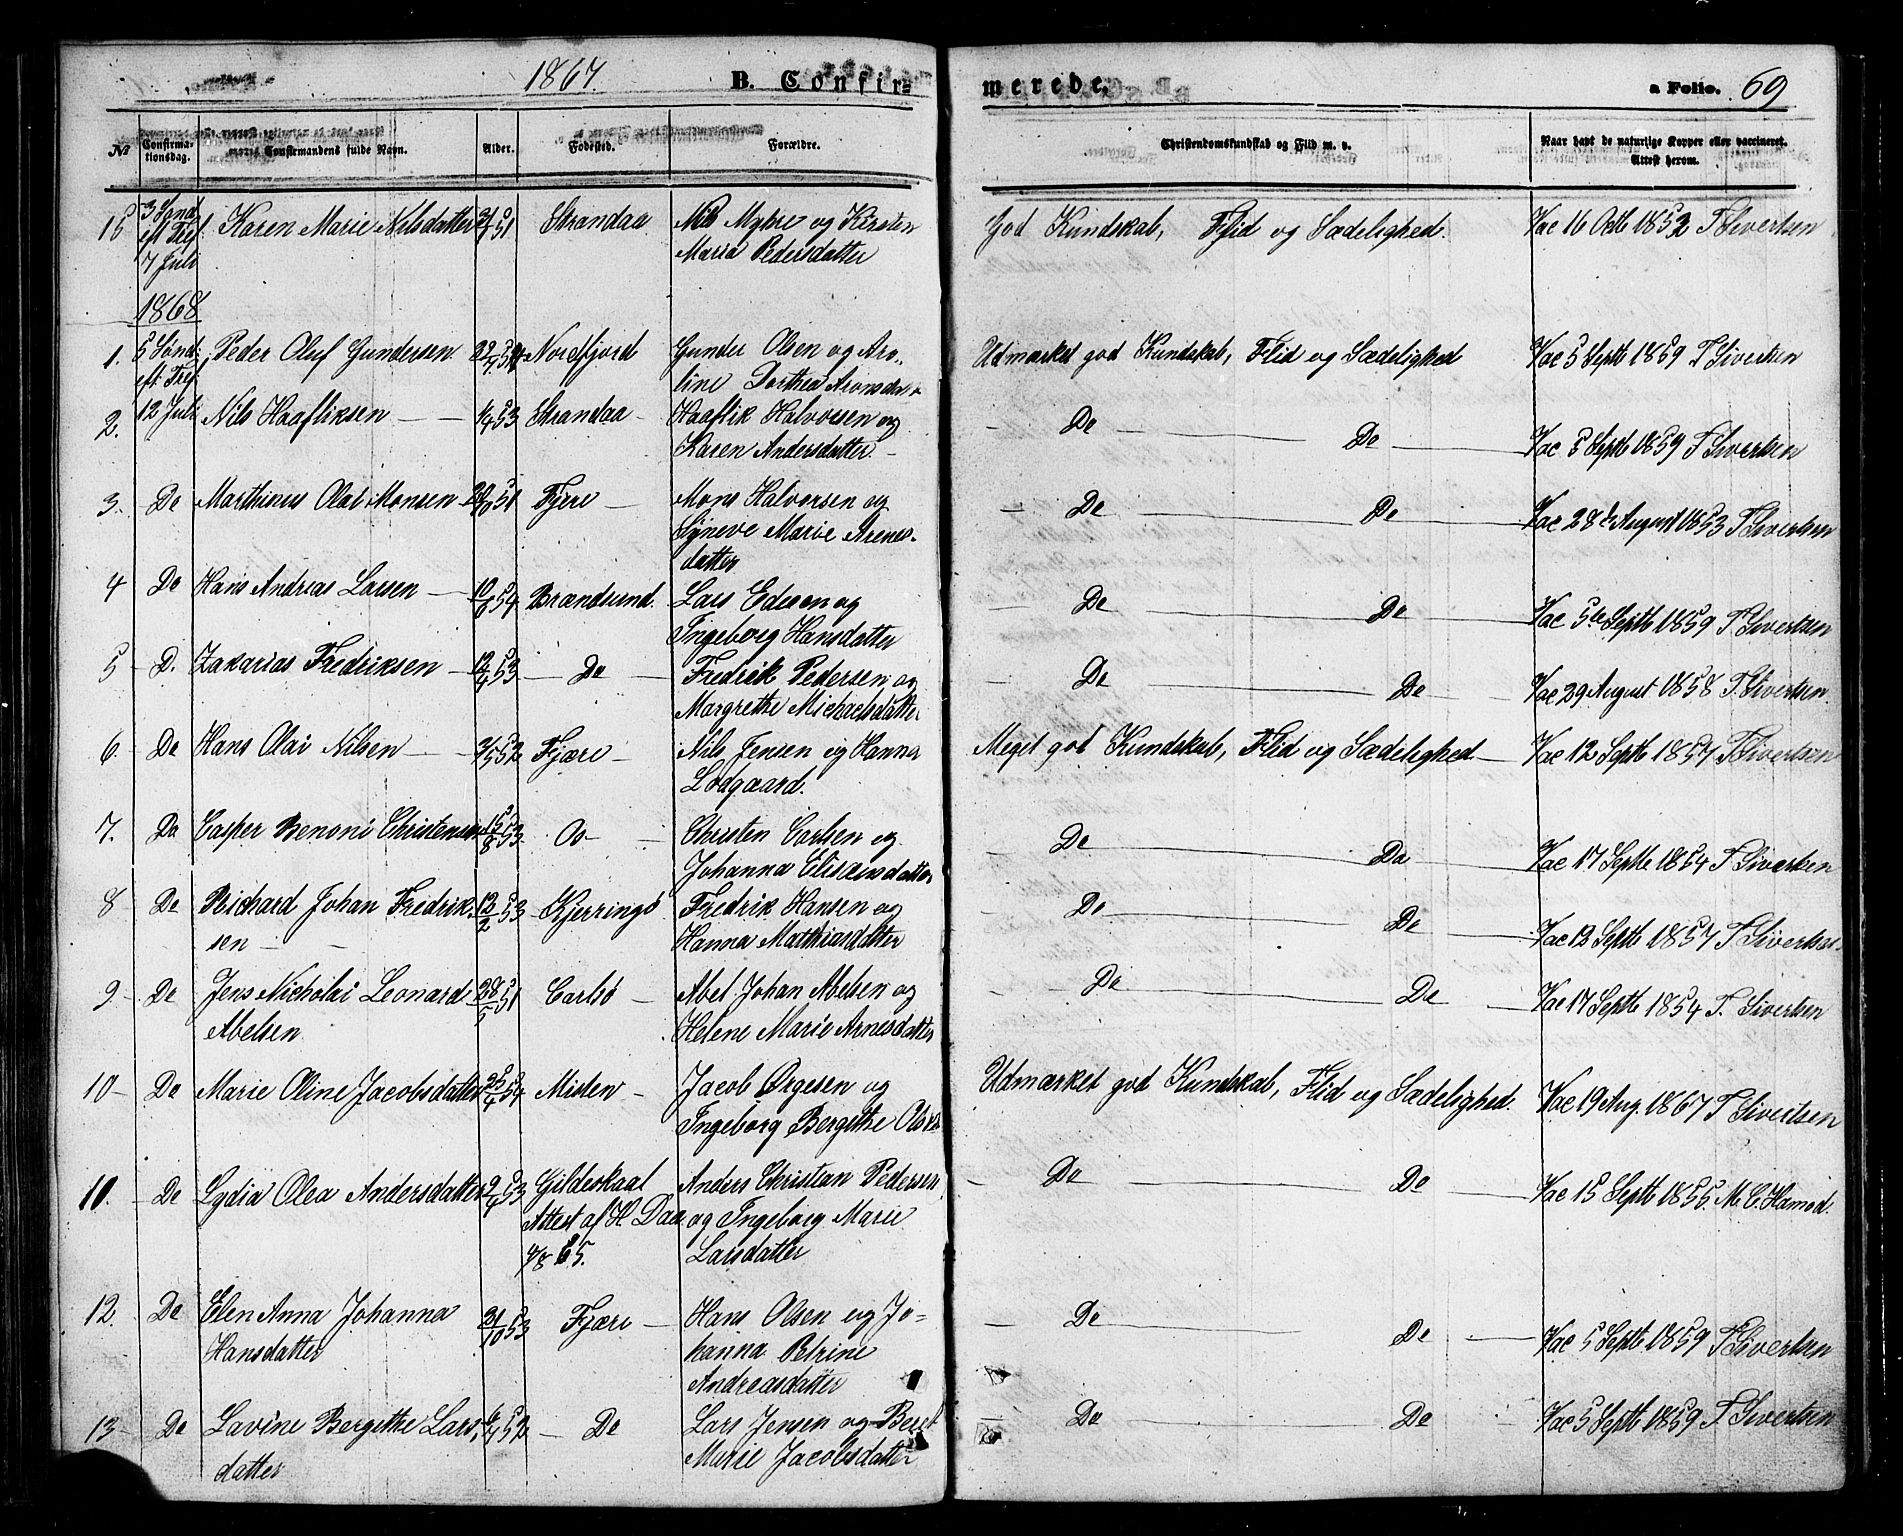 1867. B. Confir=
merede. a Folio. 69
No Confirma-tionsdag. Confirmandens fulde Navn. Alder. Fødested. Forældre. Christendomskundskab og Flid m. v. Naar havt de naturlige Kopper eller vaccineret. Attest herom.
15 3 Sønd eft Tref 7 Juli Karen Marie Nilsdatter 51 Strandaa Nils Myhre og Kirsten
Maria Pedersdatter
God Kundskab, Flid og Sædelighed. Vac 16 Octb 1852 T Sivertsen
1868
1. 5 Sønd. eft Tref 12 Juli Peder Oluf Gundersen Nordfjord Gunder Olsen og Aro-
line Dorthea Aronsdatr
Udmærket god Kundskab, Flid og Sædelighed Vac 5 Septb 1859 T Sivertsen
2. Nils Haafliksen 53 Strandaa Haaflik Halvorsen og
Karen Andersdatter
De De Vac 5 Septb 1859 T Sivertsen
3. De Marthinus Olai Monsen 51 Fjære Mons Halvorsen og
Syneve Marie Arenes-
datter
De De Vac 28de August 1853 T Sivertsen
4 De Hans Andreas Larsen 10/6 54 Brændsund. Lars Edisen og
Ingeborg Hansdatter
De De Vac 5te Septb 1859 T Sivertsen
5 D. Zakarias Fredriksen 12/4 53 De Fredrik Pedersen og
Margrethe Michaelsdatter
De De Vac 29 August 1858 T. Sivertsen.
6. De Hans Olai Nilsen 3/5 52 Fjære Nils Jensen og Hanna
Lodgaard.
Meget god Kundskab, Flid og Sædelighed Vac 12 Septb 1857 T Sivertsen
7. De Casper Benoni Christensen 15/8 53. Os Christen Carlsen og
Johanna Elisæusdatter
De De Vac 17 Septb 1854 T Sivertsen
8 De Richard Johan Fredrik-
sen 12/2 53 Kjerringø Fredrik Hansen og
Hanna Mathiasdatter
De De Vac 12 Septb 1857 T Sivertsen
9 De Jens Nicholai Leonard
Abelsen 28/5 51 Carlsø Abel Johan Abelsen og
Helene Marie Arnesdatter
De De Vac 17 Septb 1854 T. Sivertsen
10 De Marie Oline Jacobsdatter 25/4 54 Misten Jacob Ørgesen og
Ingeborg Bergitthe Olsd
Udmærket god Kundskab, Flid og Sædelighed. Vac 19 Aug. 1867 T Sivertsen
10. De Lydia Olea Andersdatter 53 Gildeskaal
Attest af H. Daa
4/8 65. Anders Christian Pedersen
og Ingeborg Marie
Larsdatter
De De Vac 15 Septb 1855. M. C. Hamod.
12. De Elen Anna Johanna
Hansdatter 31/10 53 Fjære Hans Olsen og Jo-
hanna Petrine
Andreasdatter
De De Vac 5 Septb 1859 T Sivertsen
13 De Lavine Bergitthe Lars-
datter 52 De Lars Jensen og Beret
Marie Jacobsdatter
De De Vac 5 Septb 1859 T Sivertsen